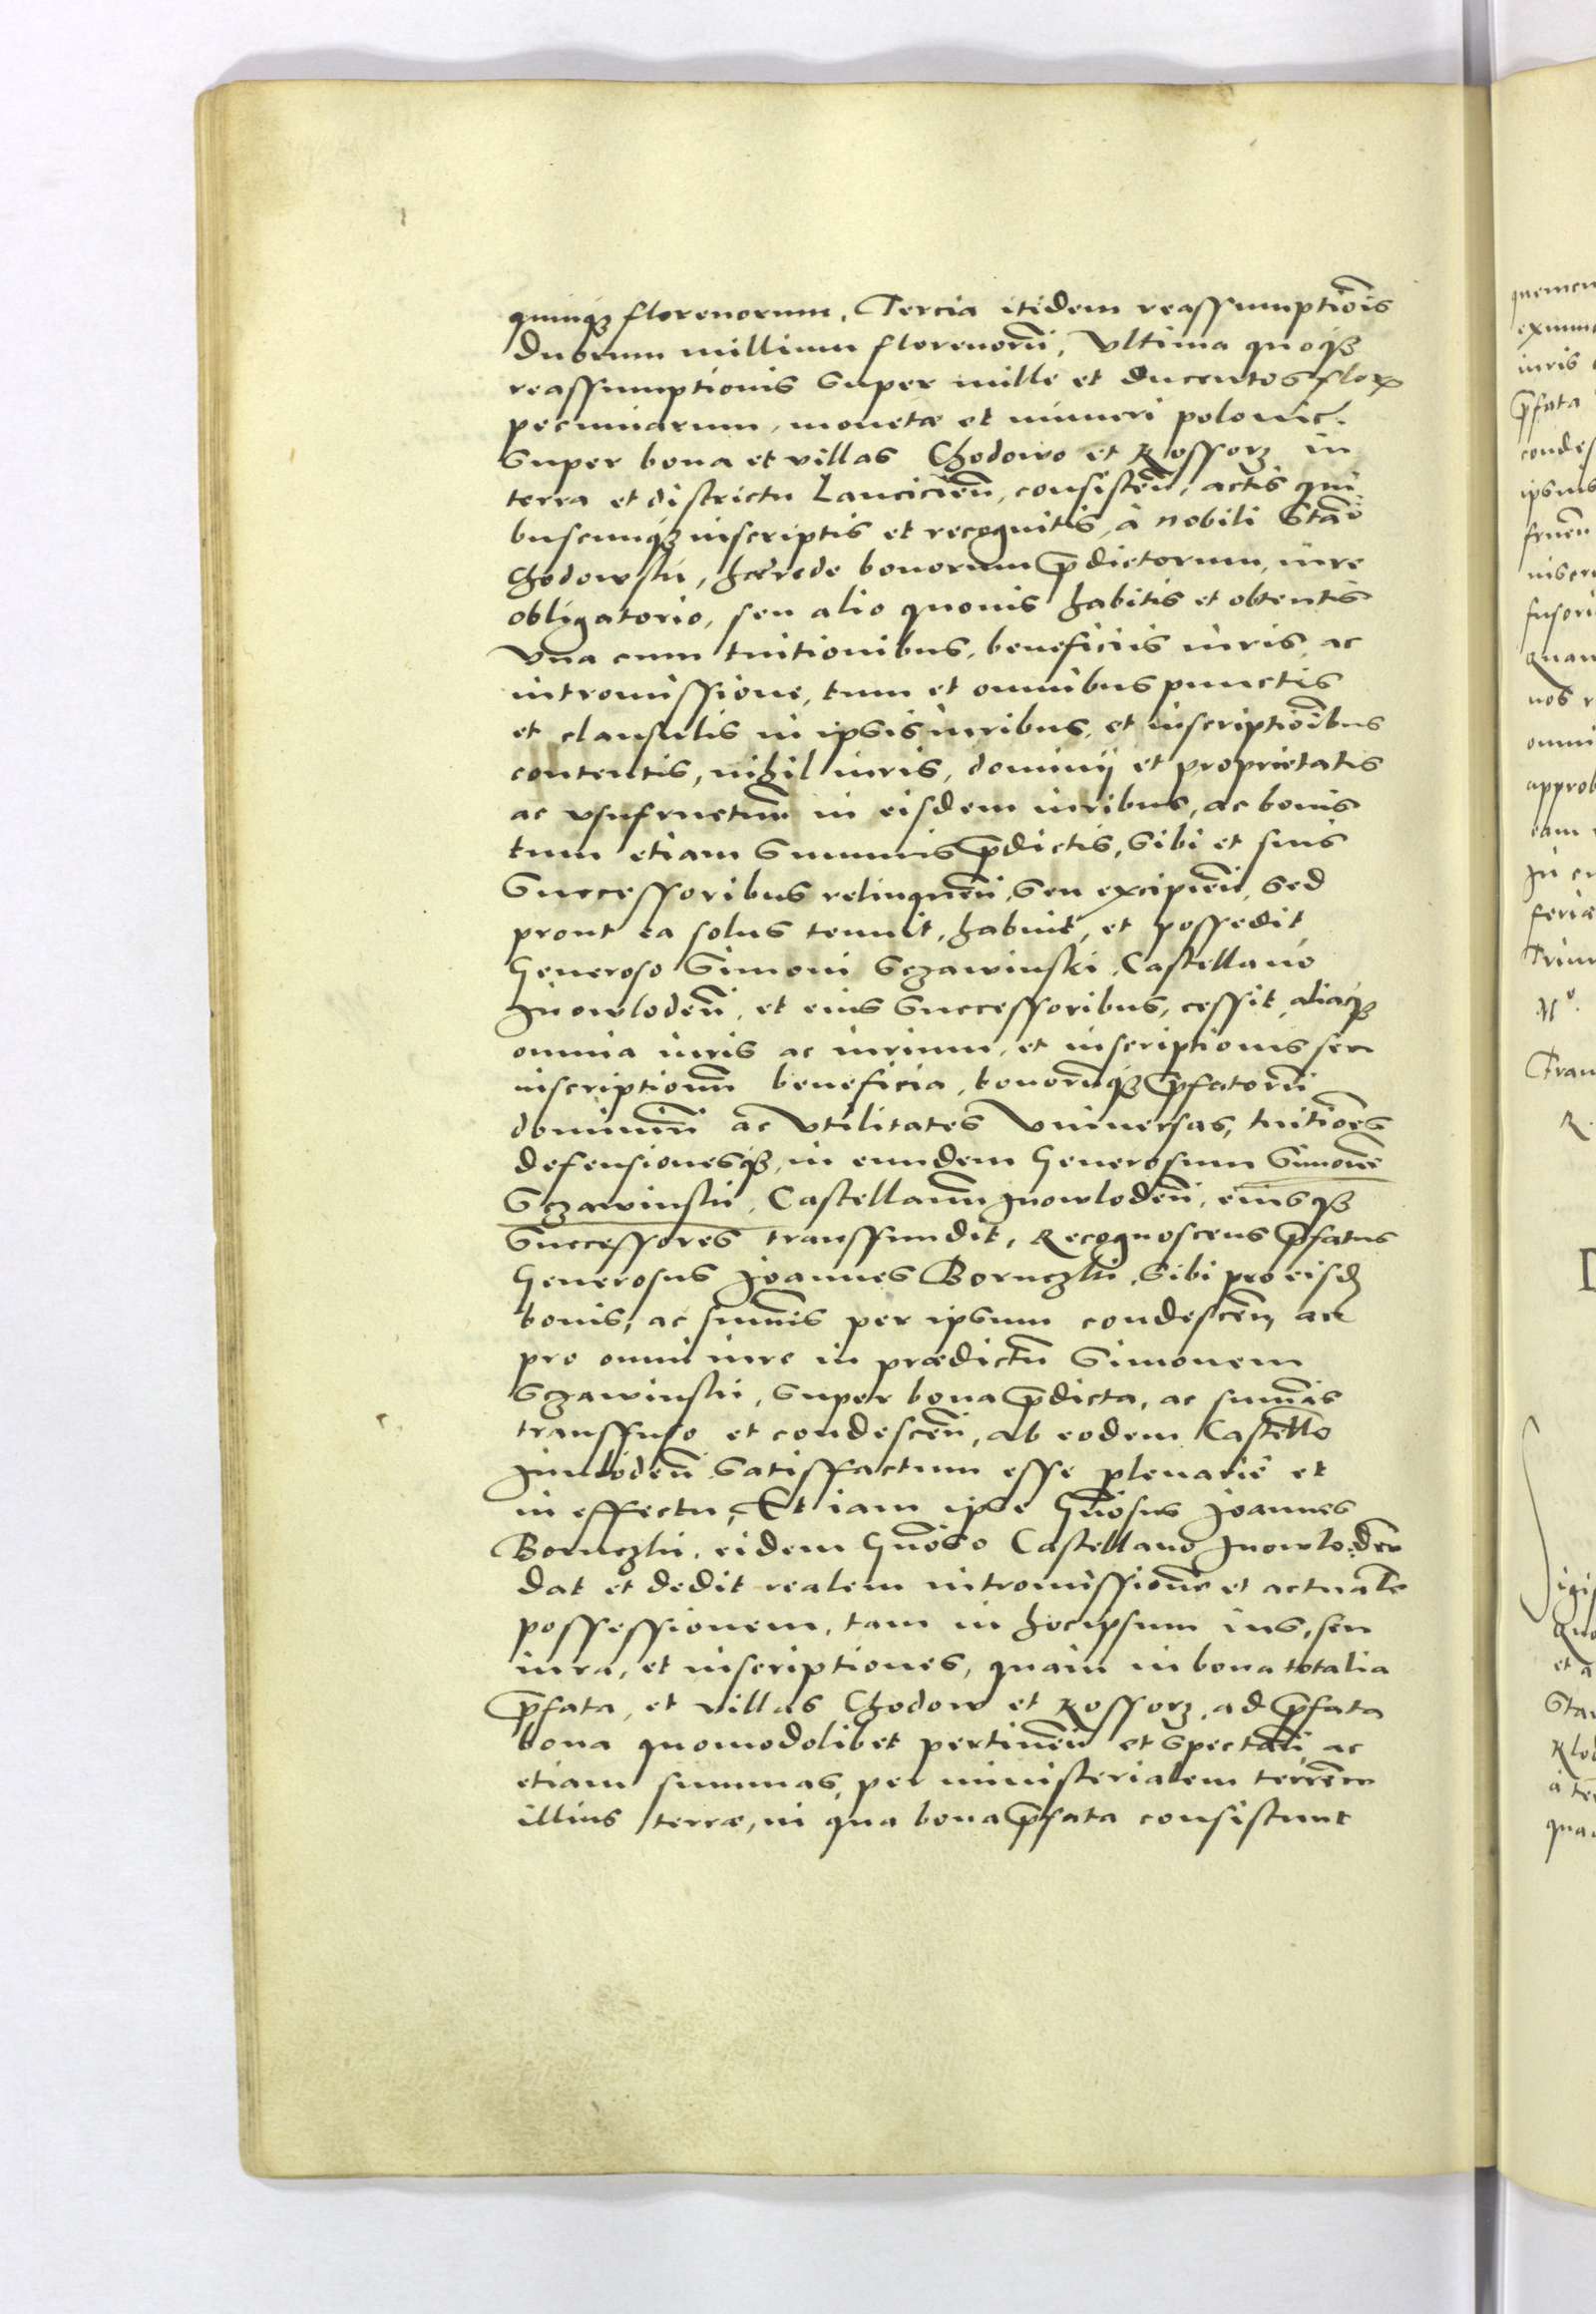 quinqȝ florenorum, Tercia itidem reassumptiōis
duorum millium florenorū, Vltima quoqȝ
reassumptionis super mille et ducentos flor
pecuniarum, monetæ et numeri polonic.
Super bona et villas Chodowo et Rossorz in
terra et districtu Lanciciēn, consistēn, actis qui
buscunqȝ inscriptis et recognitis, à nobili Stāo
Chodowski, hærede bonorum p̄dictorum, iure
obligatorio, seu alio quouis habitis et obtentis
Vna cum tuitionibus, beneficiis iuris, ac
intromissione, tum et omnibus punctis
et clausulis in ipsis iuribus, et inscriptiōibus
contentis, nihil iuris, dominij et proprietatis
ac vsufructuū in eisdem iuribus, ac bonis
tum etiam summis p̄dictis, sibi et suis
Successoribus relinquēn, seu excipiēn, sed
prout ea solus tenuit, habuit, et possedit,
Generoso Simoni Sczawinski, Castellano
Inowlodēn, et eius successoribus, cessit, aliaqȝ
omnia iuris ac iurium, et inscriptionis seu
inscriptionū beneficia, bonorūqȝ p̄fatorū
dominiū ac vtilitates vniuersas, tuitiōes
defensionesqȝ, in eundem Generosum Simonē
Sczawinski, Castellanū Inowlodēn, eiusqȝ
Successores transfundit, Recognoscens p̄fatus
Generosus Joannes Boruczki, sibi pro eisd
bonis, ac sum̄is per ipsum condescēn, ac
pro omni iure in prædictū Simonem
Sczawinski, super bona p̄dicta, ac sum̄as
transfuso et condescēn, ab eodem Castello
Inulodēn satisfactum esse plenarie et
in effectu, Et iam ipse Gn̄osus Joannes
Boruczki, eidem Gn̄oso Castellano Inowlodēn
dat et dedit realem intromissionē et actualē
possessionem, tam in hoc ipsum ius, seu
iura, et inscriptiones, quam in bona totalia
p̄fata, et villas Chodow et Rossorz, ad p̄fata
bona quomodolibet pertinēn et spectān, ac
etiam summas, per ministerialem terrēm
illius terræ, in qua bona p̄fata consistunt